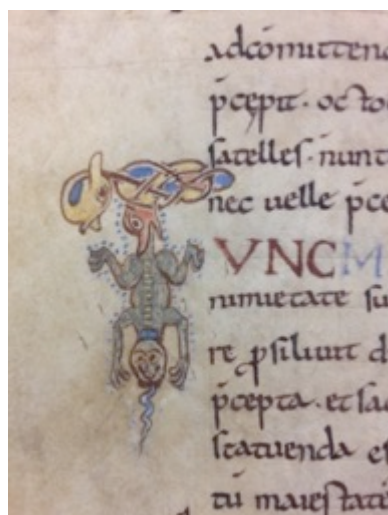 adcomittend
pcepit · octo
satelles · nunt
nec uelle pce
VNC M
numietate su
re psiliuit d
pcepta · et sac
statuenda es
tu maiestati